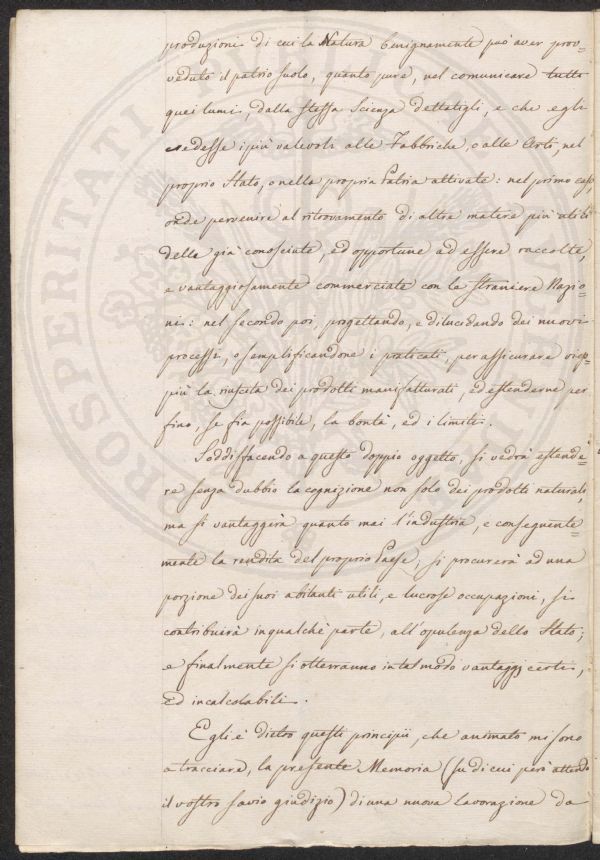 produzioni di cui la Natura benignamente può aver prov=
veduto il patrio suolo, quanto pure, nel comunicare tutti
quei lumi, dalla stessa Scienza dettatigli, e che egli
credesse i più valevoli alle Fabbriche, o alle Arti, nel
proprio Stato, o nella propria Patria attivate: nel primo caso,
onde pervenire al ritrovamento di altre materie più utili
delle già conosciute, ed opportune ad essere raccolte,
e vantaggiosamente commerciate con le straniere Nazio=
ni: nel secondo poi, progettando, e dilucidando dei nuovi
processi, o semplificandone i praticati, per assicurare viep=
più la riuscita dei prodotti manifatturati, ed estenderne per
fino, se fia possibile, la bontà, ed i limiti.
Soddisfacendo a questo doppio oggetto, si vedrà estende=
re senza dubbio la cognizione non solo dei prodotti naturali,
ma si vantaggerà quanto mai l'industria, e conseguente=
mente la rendita del proprio Paese; si procurerà ad una
porzione dei suoi abitanti utili, e lucrose occupazioni, si
contribuirà in qualche parte, all'opulenza dello Stato;
e finalmente si otterranno in tal modo vantaggj certi,
ed incalcolabili.
Egli è dietro questi principii, che animato mi sono
a tracciare, la presente Memoria (su di cui però attendo
il vostro savio giudizio) di una nuova lavorazione da
PROSPERITATI